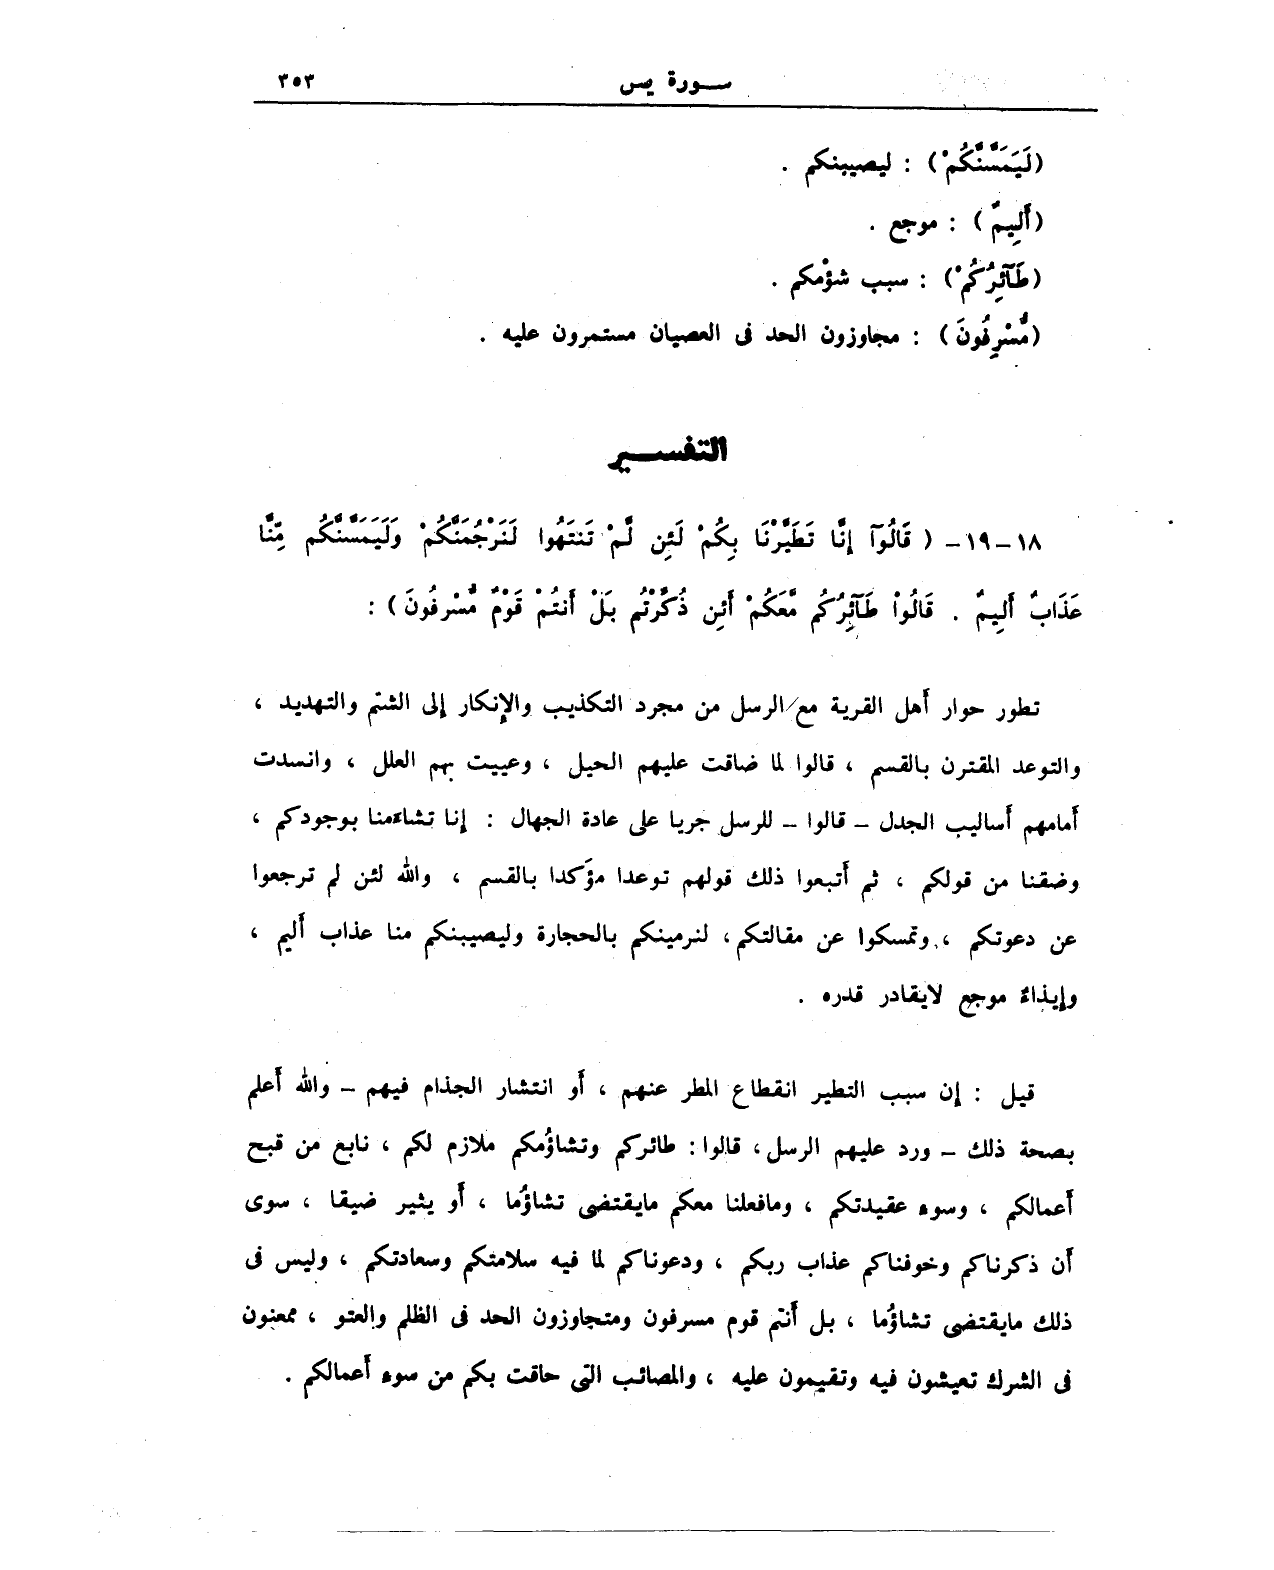 سورة يس ٣٥٣
(لَيَمَسَّنَّكُمْ) : ليصيبنكم .
(أَلِيمٌ) : موجع .
(طَآئِرُكُمْ) : سبب شؤْمكم .
(مُّسْرِفُونَ) : مجاوزون الحد فى العصيان مستمرون عليه .
التفسير
١٨ - ١٩ - ( قَالُوٓا إِنَّا تَطَيَّرْنَا بِكُمْ لَئِن لَّمْ تَنتَهُوا لَنَرْجُمَنَّكُمْ وَلَيَمَسَّنَّكُم مِّنَّا
عَذَابٌ أَلِيمٌ . قَالُوْا طَآئِرُكُم مَّعَكُمْ أَئِن ذُكِّرْتُم بَلْ أَنتُمْ قَوْمٌ مُّسْرِفُونَ) :
تطور حوار أَهل القرية مع الرسل من مجرد التكذيب والإِنكار إِلى الشتم والتهديد ،
والتوعد المقترن بالقسم ، قالوا لما ضاقت عليهم الحيل ، وعييت بهم العلل ، وانسدت
أَمامهم أَساليب الجدل - قالوا - للرسل جريا على عادة الجهال : إِنا تشاءمنا بوجودكم ،
وضقنا من قولكم ، ثم أَتبعوا ذلك قولهم توعدا مؤَكدا بالقسم ، والله لئن لم ترجعوا
عن دعوتكم ، وتمسكوا عن مقالتكم ، لنرمينكم بالحجارة وليصيبنكم منا عذاب أَليم ،
وإِيذاءٌ موجع لايقادر قدره .
قيل : إِن سبب التطير انقطاع المطر عنهم ، أَو انتشار الجذام فيهم - والله أَعلم
بصحة ذلك - ورد عليهم الرسل ، قالوا : طائركم وتشاؤُمكم ملازم لكم ، نابع من قبح
أَعمالكم ، وسوء عقيدتكم ، ومافعلنا معكم مايقتضى تشاؤُما ، أَو يثير ضيقا ، سوى
أَن ذكرناكم وخوفناكم عذاب ربكم ، ودعوناكم لما فيه سلامتكم وسعادتكم ، وليس فى
ذلك مايقتضى تشاؤُما ، بل أَنتم قوم مسرفون ومتجاوزون الحد فى الظلم والعتو ، ممعنون
فى الشرك تعيشون فيه وتقيمون عليه ، والمصائب التى حاقت بكم من سوء أَعمالكم .